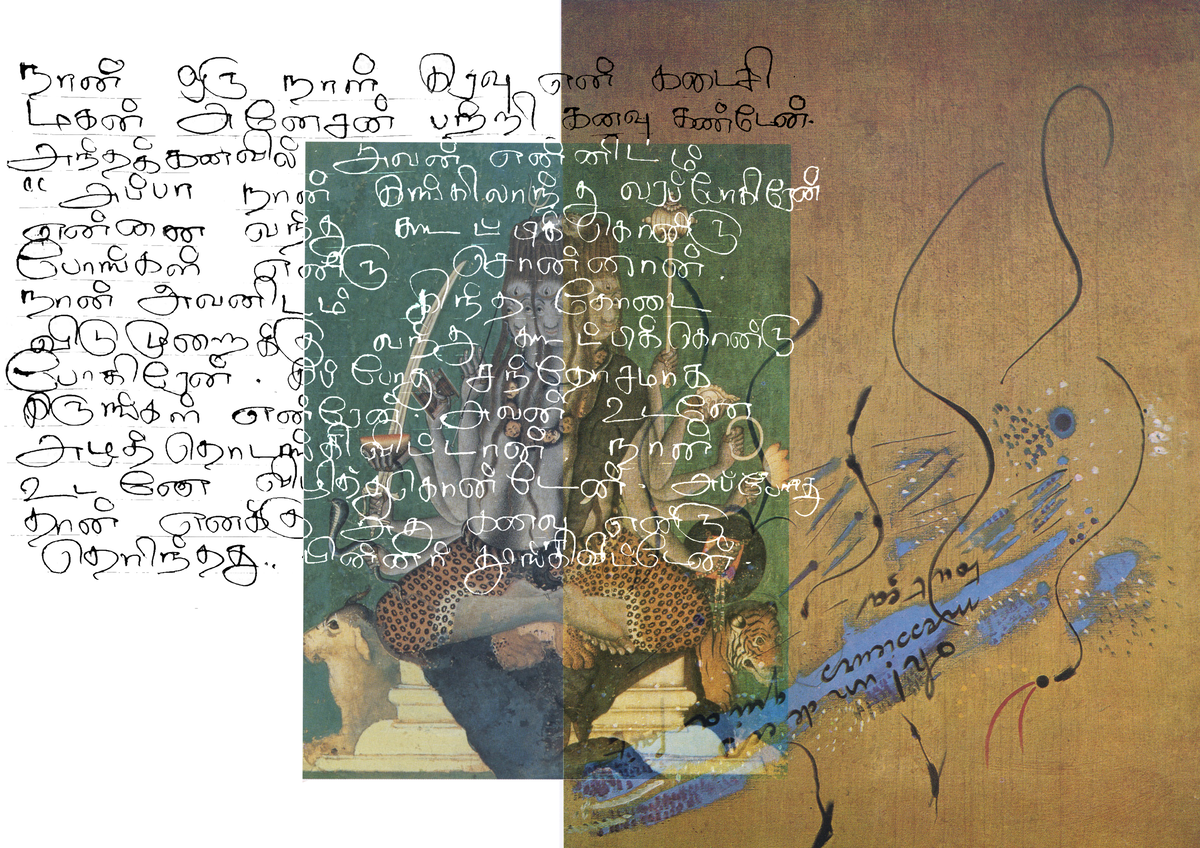 நான் ஒரு நாள் இரவு என் கடைசி
மகன் அனேசன் பற்றி கனவு கண்டேன்.
அந்தக்கனவில் அவன் என்னிடம்
"அப்பா நான் இங்கிலாந்து வரப்போகிறேன்
என்னை வந்து கூட்டிக்கொண்டு
போங்கள் என்று சொன்னான்.
நான் அவனிடம் இந்த கோடை
விடுமுறைக்கு வந்து கூட்டிக்கொண்டு
போகிறேன். இப்போது சந்தோசமாக
இருங்கள் என்றேன் அவன் உடனே
அழத்தொடங்கிவிட்டான். நான்
உடனே விழித்துகொண்டேன். அப்போது
தான் எனக்கு அது கனவு என்று
தெளிந்தது.. பின்னர் தூங்கிவிட்டேன்.